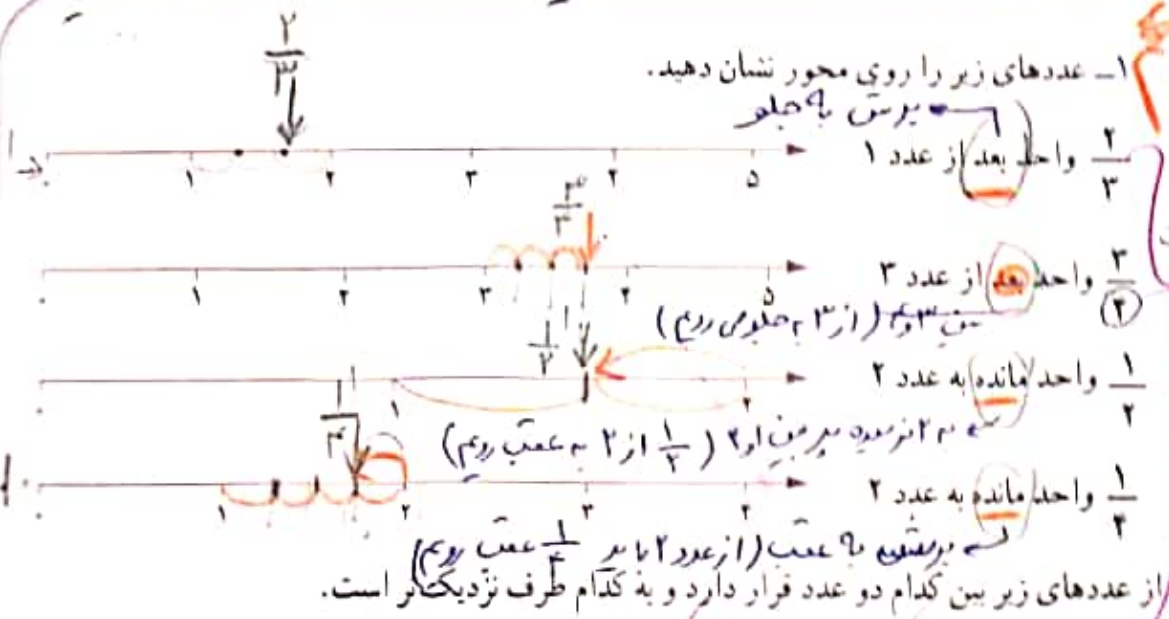 ۱ـ عددهای زیر را روی محور نشان دهید.
۲/۳
پرش به جلو
۲/۳ واحد بعد از عدد ۱
۰ ۱ ۲ ۳ ۴ ۵
۳/۴
۳/۴ واحد بعد از عدد ۳
۰ ۱ ۲ ۳ ۴ ۵
بین ۳ و ۴ (از ۳ به جلو می رویم)
۱/۲
۱/۲ واحد مانده به عدد ۲
۰ ۱ ۲
به ۲ نرسیده پس بین ۱ و ۲ (۱/۲ از ۲ به عقب رویم)
۱/۴
۱/۴ واحد مانده به عدد ۲
۰ ۱ ۲ ۳ ۴
به عقب (از عدد ۲ باید ۱/۴ عقب رویم)
از عددهای زیر بین کدام دو عدد قرار دارد و به کدام طرف نزدیک‌تر است.